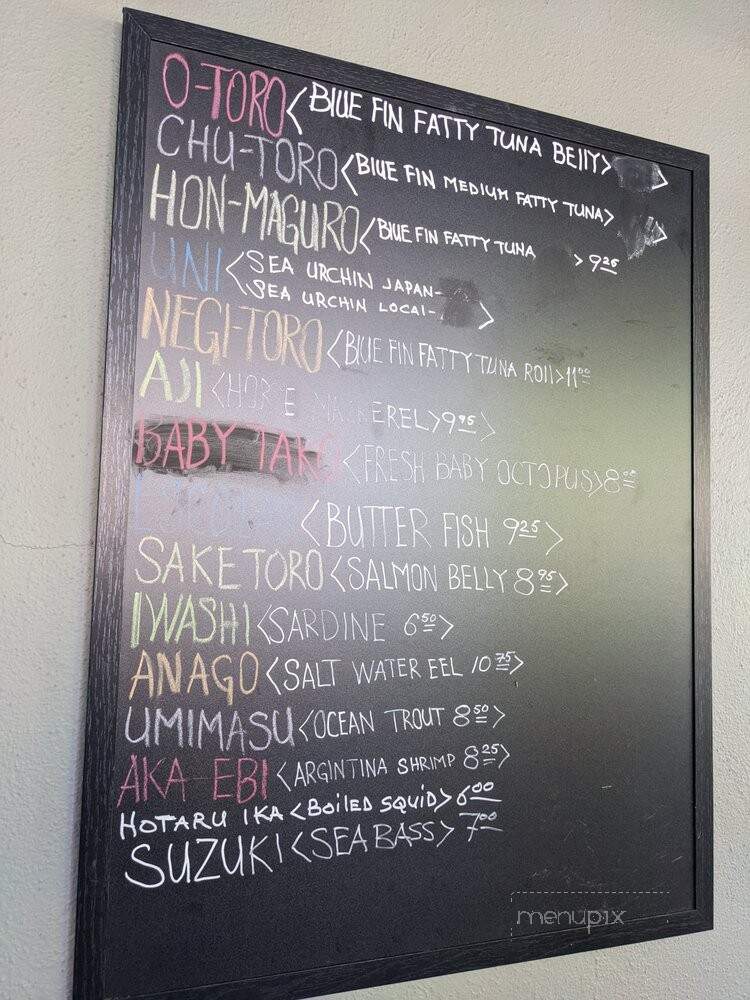 O-TORO <BLUE FIN FATTY TUNA BELLY>
CHU-TORO <BLUE FIN MEDIUM FATTY TUNA>
HON-MAGURO <BLUE FIN FATTY TUNA > 9 25
UNI <SEA URCHIN JAPAN-
<SEA URCHIN LOCAL- >
NEGI-TORO <BLUE FIN FATTY TUNA ROLL> 11 00
AJI 9 95 >
BABY TAKO <FRESH BABY OCTOPUS> 8
<BUTTER FISH 9 25 >
SAKE TORO <SALMON BELLY 8 95 >
IWASHI <SARDINE 6 50 >
ANAGO <SALT WATER EEL 10 75 >
UMIMASU <OCEAN TROUT 8 50 >
AKA EBI <ARGINTINA SHRIMP 8 25 >
HOTARU IKA <BOILED SQUID> 6 00
SUZUKI <SEA BASS> 7 00
menupix